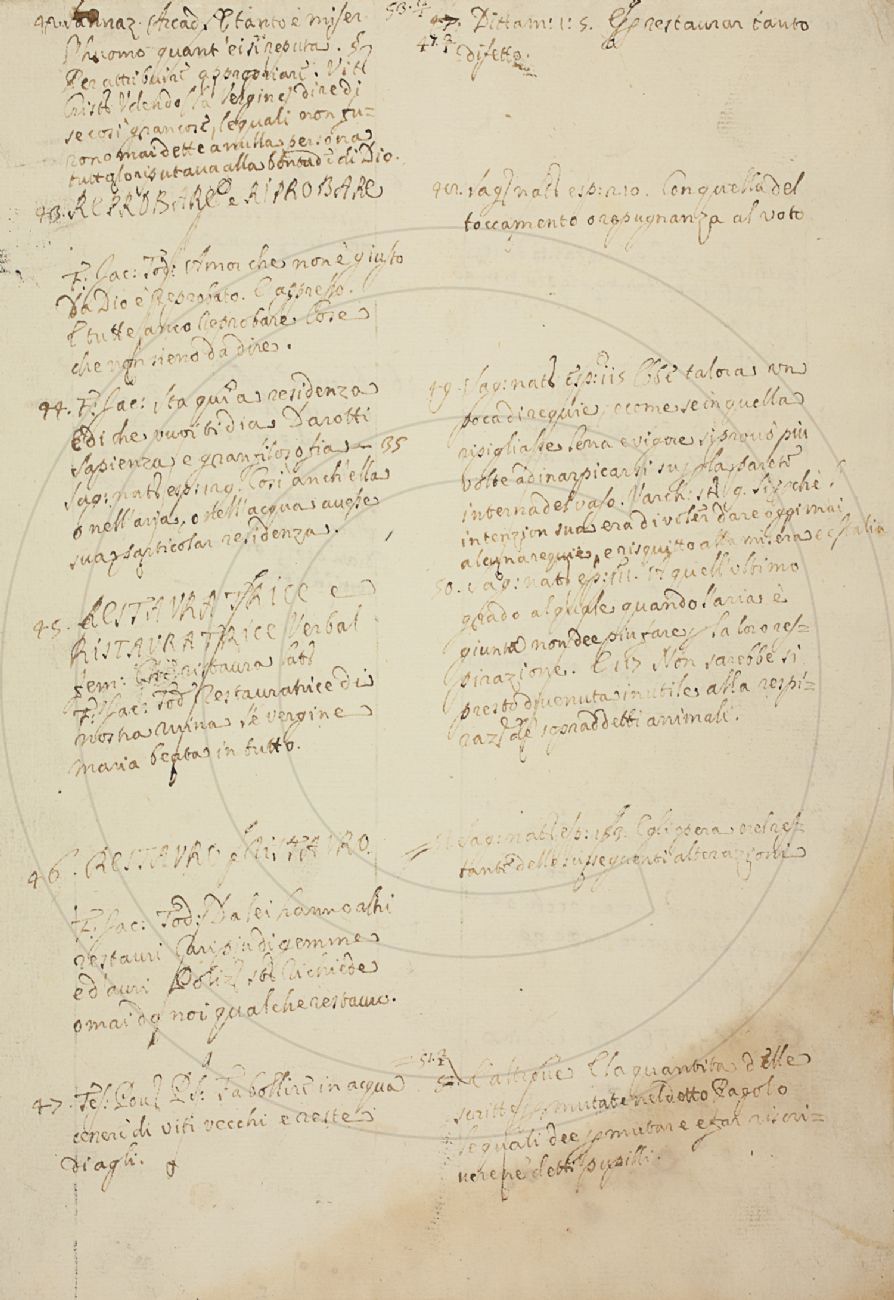 42. Sannaz. Arcad. E tanto è miser
l'huomo quant' ei si reputa. §
Per attribuire appropriare. Vit.
Crist. Udendosi la Vergine dire di
se così gran cose, le quali non fu-
rono mai dette a nulla persona
tutto lo riputava alla bontade di Dio.
43. REPROBARE e RIPROBARE
F. Iac: Tod: Amor che non è giusto
Da Dio è Reprobato. E appresso.
E tutte sanco Reprobare Cose
che non sieno da dire.
44. F. Iac: Sta qui a residenza
E di che vuoi ti dia Darotti
Sapienza e gran filosofia — 35
Sag: nat. esp: 119. Così anch' ella
o nell' aria, o nell' acqua avesse
sua particolar residenza.
45. RESTAURATRICE e
RISTAURATRICE Verbal
fem: Che ristaura Lat.
F. Iac: Tod. Restauratrice di
nostra ruina se vergine
maria beata in tutto.
46. RESTAURO e RISTAURO.
F. Iac: Tod: Da lei hanno alhi
restauri Cari più di gemme
ed auri Poliz. st. Richiede
omai da noi qualche restauro.
47. Tes. Pov. P. S. Fa bollire in acqua
cenere di viti vecchi e reste
di agli.
53.
47. Dittam: 1: 5. E per restaurar tanto
47.2 difetto.
48. Sag. nat. esp: 210. Con quella del
toccamento o repugnanza al voto
49. Sag: nat. Esp: 115 Ebbe talora un
poca di requie, e come se in quella
ripigliasse lena e vigore si provò più
volte ad inarpicarsi su per la parete
interna del vaso. Varch: St. 9. Sicchè
intenzion sua era di voler dare oggimai
alcuna requie, e rispitto alla misera Italia
50. Sag: nat. esp: 111. In quell' ultimo
grado al quale quando l'aria è
giunta non dee più fare per la loro res-
pirazione. E 117 Non sarebbe sì
presto divenuta inutile alla respi-
raz. de sopraddetti animali.
51. Sag: nat. esp: 183. Egli opera nel res-
tante delle susseguenti alterazioni
51.2
52. E altrove E la quantità delle
scritte permutate nel detto Pagolo
le quali dee permutare e far riscri-
vere ne detti pupilli.